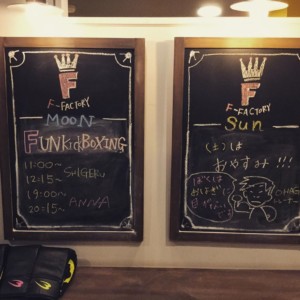 F
F-FACTORY
MOON
FUNKidBOXING
11:00~
12:15~ SHIGERU
19:00~
20:15~ ANNA
F
F-FACTORY
Sun
(土)は
おやすみ!!!
ぼくは